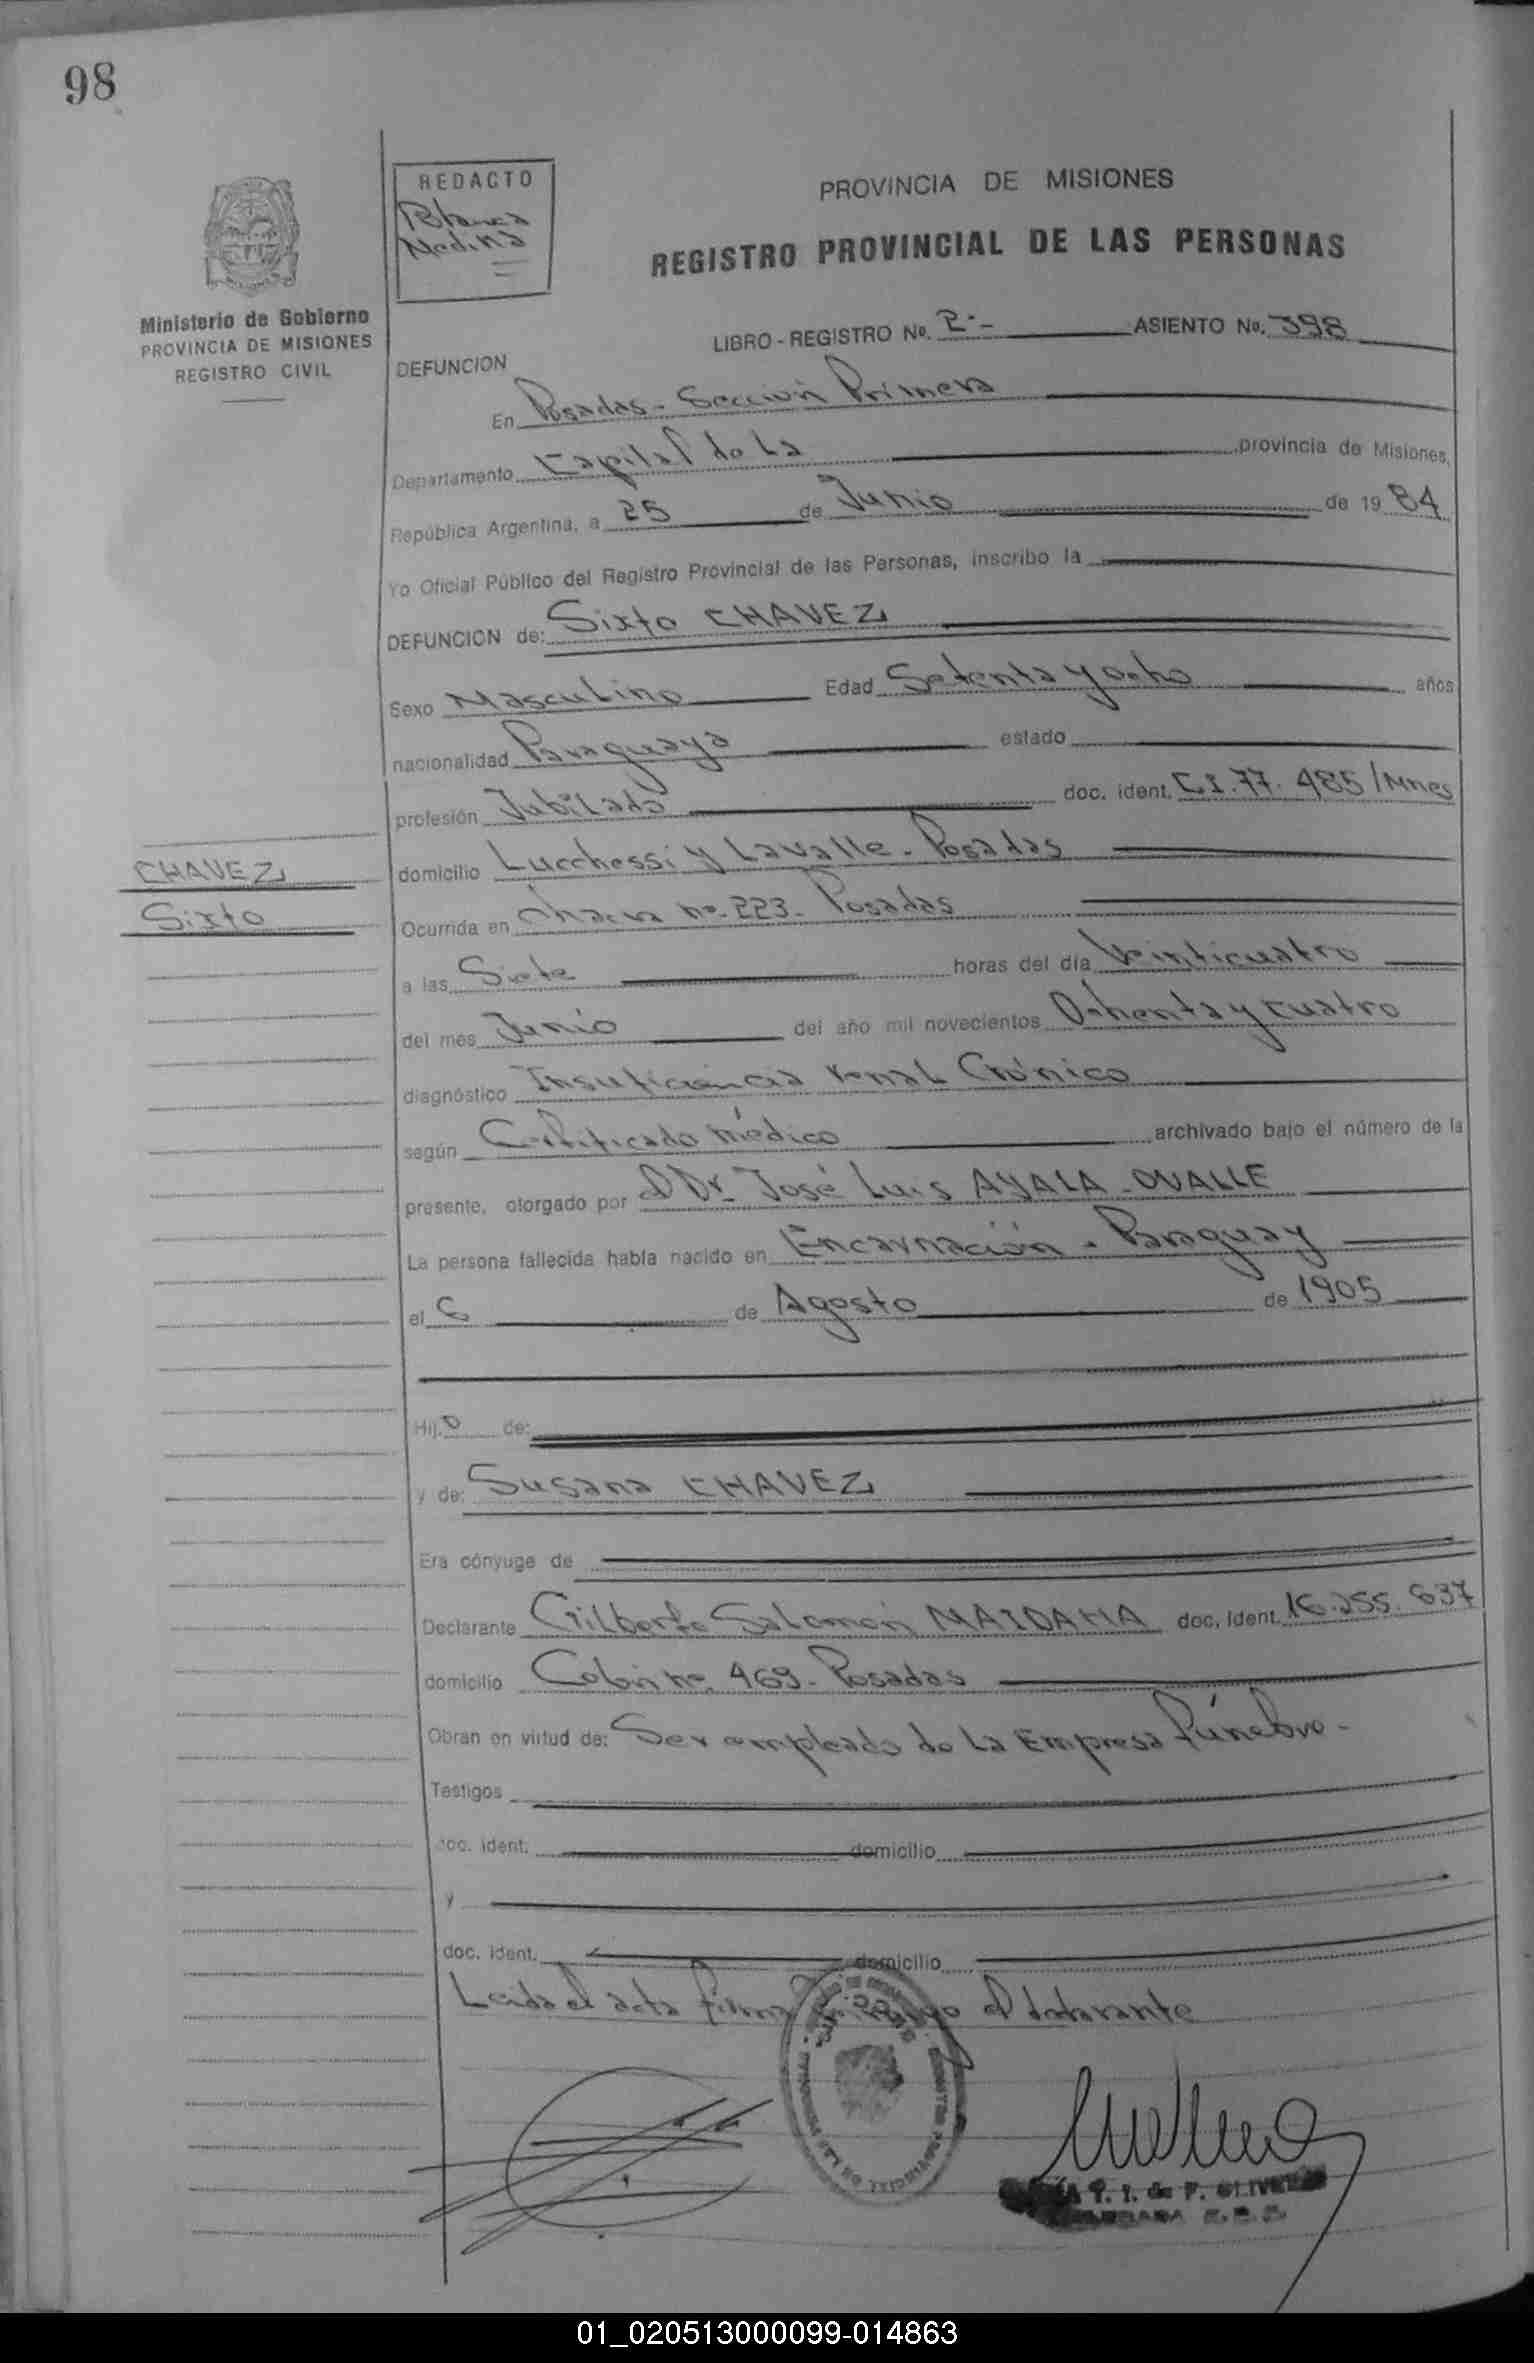 98
REDACTO
Blanca
Medina
PROVINCIA DE MISIONES
REGISTRO PROVINCIAL DE LAS PERSONAS
Ministerio de Gobierno
PROVINCIA DE MISIONES
REGISTRO CIVIL
LIBRO - REGISTRO No. 2.- ASIENTO No. 398
DEFUNCION
En Posadas - Sección Primera
Departamento Capital de La provincia de Misiones,
República Argentina, a 25 de Junio de 1984
Yo Oficial Público del Registro Provincial de las Personas, inscribo la
DEFUNCION de: Sixto CHAVEZ
Sexo Masculino Edad Setenta y ocho años
nacionalidad Paraguaya estado
profesión Jubilado doc. ident. C.I. 77. 485/Mnes
CHAVEZ
Sixto
domicilio Lucchessi y Lavalle - Posadas
Ocurrida en chacra no. 223 - Posadas
a las Siete horas del día Veinticuatro
del mes Junio del año mil novecientos Ochenta y cuatro
diagnóstico Insuficiencia renal Crónico
según Certificado médico archivado bajo el número de la
presente, otorgado por el Dr. José Luis AYALA - OVALLE
La persona fallecida había nacido en Encarnación - Paraguay
el 6 de Agosto de 1905
Hij.o de:
y de: Susana CHAVEZ
Era cónyuge de
Declarante Gilberto Salomón MAIDANA doc. ident. 16.255.637
domicilio Colón no. 469 - Posadas
Obran en virtud de: Ser empleado de La Empresa fúnebre -
Testigos
doc. ident. domicilio
y
doc. ident. domicilio
Leida el acta firma el declarante
T. I. de P. OLIVERA
01_020513000099-014863